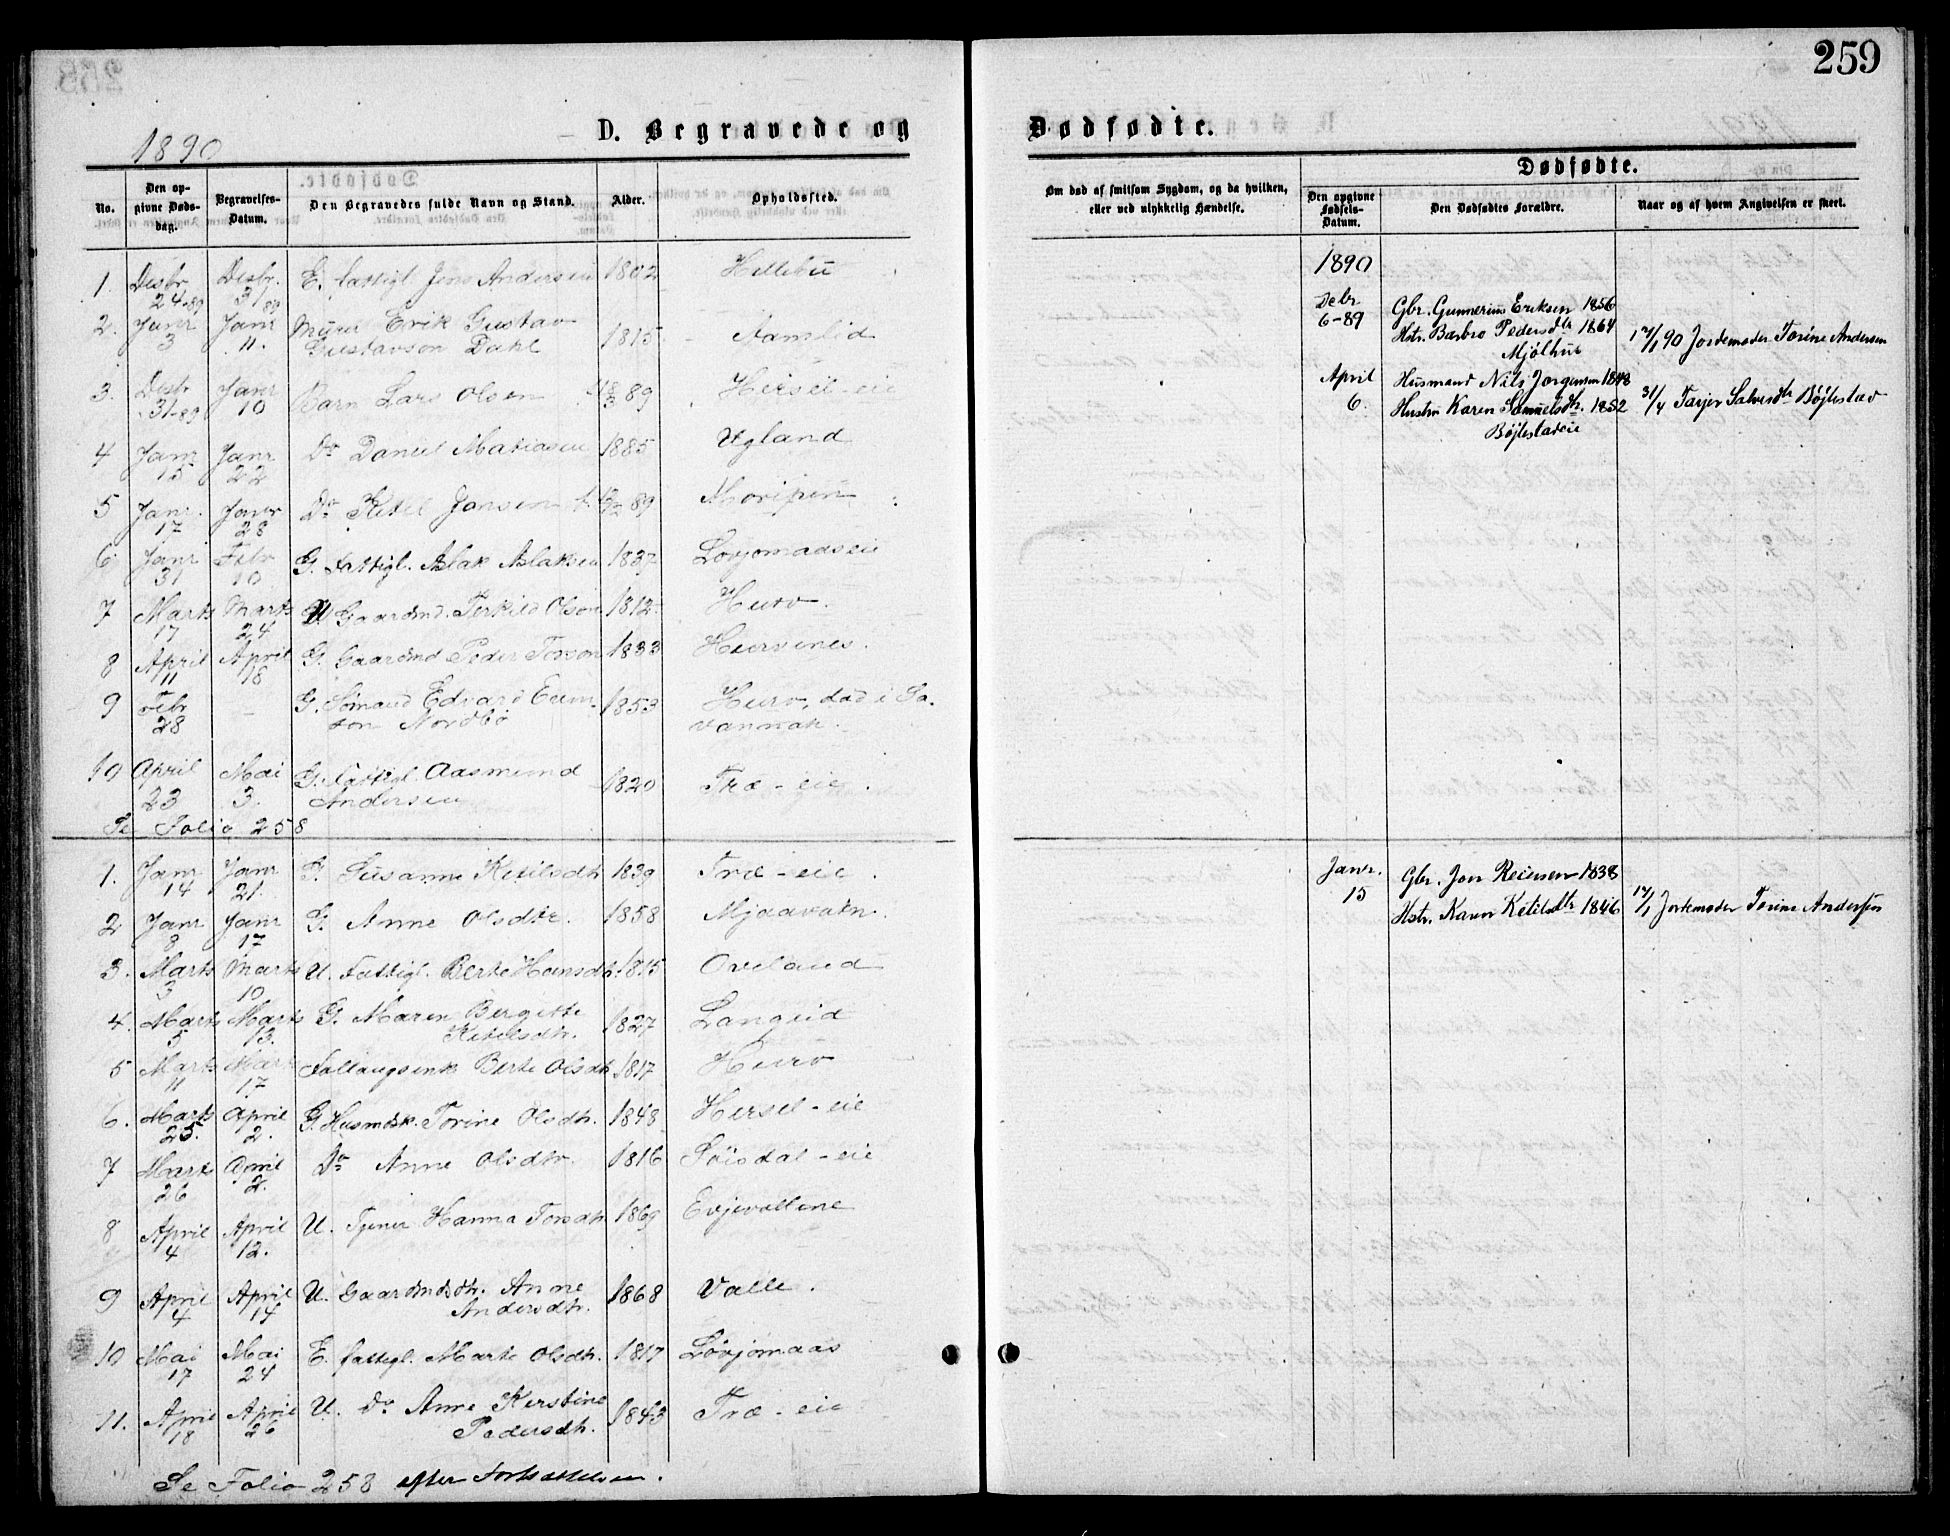 259
1890
D. Begravede og
Dødfødte.
No.
Den opgivne Dødsdag.
Begravelses-Datum.
Den Begravedes fulde Navn og Stand.
Alder.
Opholdssted.
Om død af smitsom Sygdom, og da hvilken, eller ved ulykkelig Hændelse.
Dødfødte.
Den opgivne Fødsels-Datum.
Den Dødfødtes Forældre.
Naar og af hvem Angivelsen er skeet.
1. Desbr 24-89 Desbr. 31/89 E. fattigl Jens Andersen 1802 Hillebu
2. Janr 3 Janr 11. Murer Erik Gustav
Gustavson Dahl 1815 Aamlid
3. Desbr 31-89 Janr 10 Barn Lars Olsen 89 Hersel-eie
4 Janr 15 Janr 22 Do Daniel Matiasen 1885 Ugland
5 Janr. 17 Janr 28 Do Ketel Jansen 89
6 Janr 31 Febr 10 G. Fattigl. Aslak Aslaksen 1837 Løvjomaaseie
7 Marts 17 Marts 24 U Gaardmd. Terkild Olson 1812 Hurv.
8 April 11 April 18 G. Gaardmd Peder Torson 1833
9 Febr 28 - G. Sømand Edvard Eum-
son Nordbø 1853 Hurv, død i Sa-
vannnah.
10 April 23 Mai 3. G. Fattigl. Aasmund
Andersen 1820 Træ-eie.
Se Folio 258
1. Janr 14 Janr 21. G. Susanne Ketilsdtr 1839 Træ-eie.
2 Janr 8 Janr 17 G. Anne Olsdtr. 1858 Mjaavatn.
3. Marts 3 Marts 10 U. Fattigl. Berte Hansdtr. 1815 Oveland
4. Marts 5 Marts 13. G. Maren Bergitte
Ketilsdtr. 1827 Langeid
5 Marts 11 Marts 17 Fattaugsenk Berte Olsdtr 1817 Hurv
6. Marts 25. April 2. G. Husmdsk. Torine Olsdtr. 1848 Hersel-eie
7 Marts 26 April 2. Do Anne Olsdtr. 1816
8 April 4 April 12. U. Tjener Hanna Torsdtr 1869 Evjevollene
9 April 4 April 14 U. Gaardmdsdtr. Anne
Andersdtr. 1868 Valle.
10 Mai 17 Mai 24 E. fattigl. Marte Olsdtr. 1817 Løvjomaas
11. April 18 April 26 U. Do Anne Kerstine
Pedersdtr. 1843 Træ-eie
Se Folio 258 efter Fortsættelsen.
1890
Debr 6-89 Gbr. Gunnerius Eriksen 1856
Hstr. Barbro Pedersdtr 1864
Mjølhus
17/1 90 Jordemoder Torine Andersen
April 6. Husmand Nils Jorgensen 1848
Hustru Karen Samuelsdtr. 1852
Bøjlestadeie
31/4 Tarjer Salvesdtr Bøjlestad
Janr. 15 Gbr. Jon Reiersen 1838
Hstr. Karen Ketilsdtr 1846
17/1 Jordemoder Torine Andersen